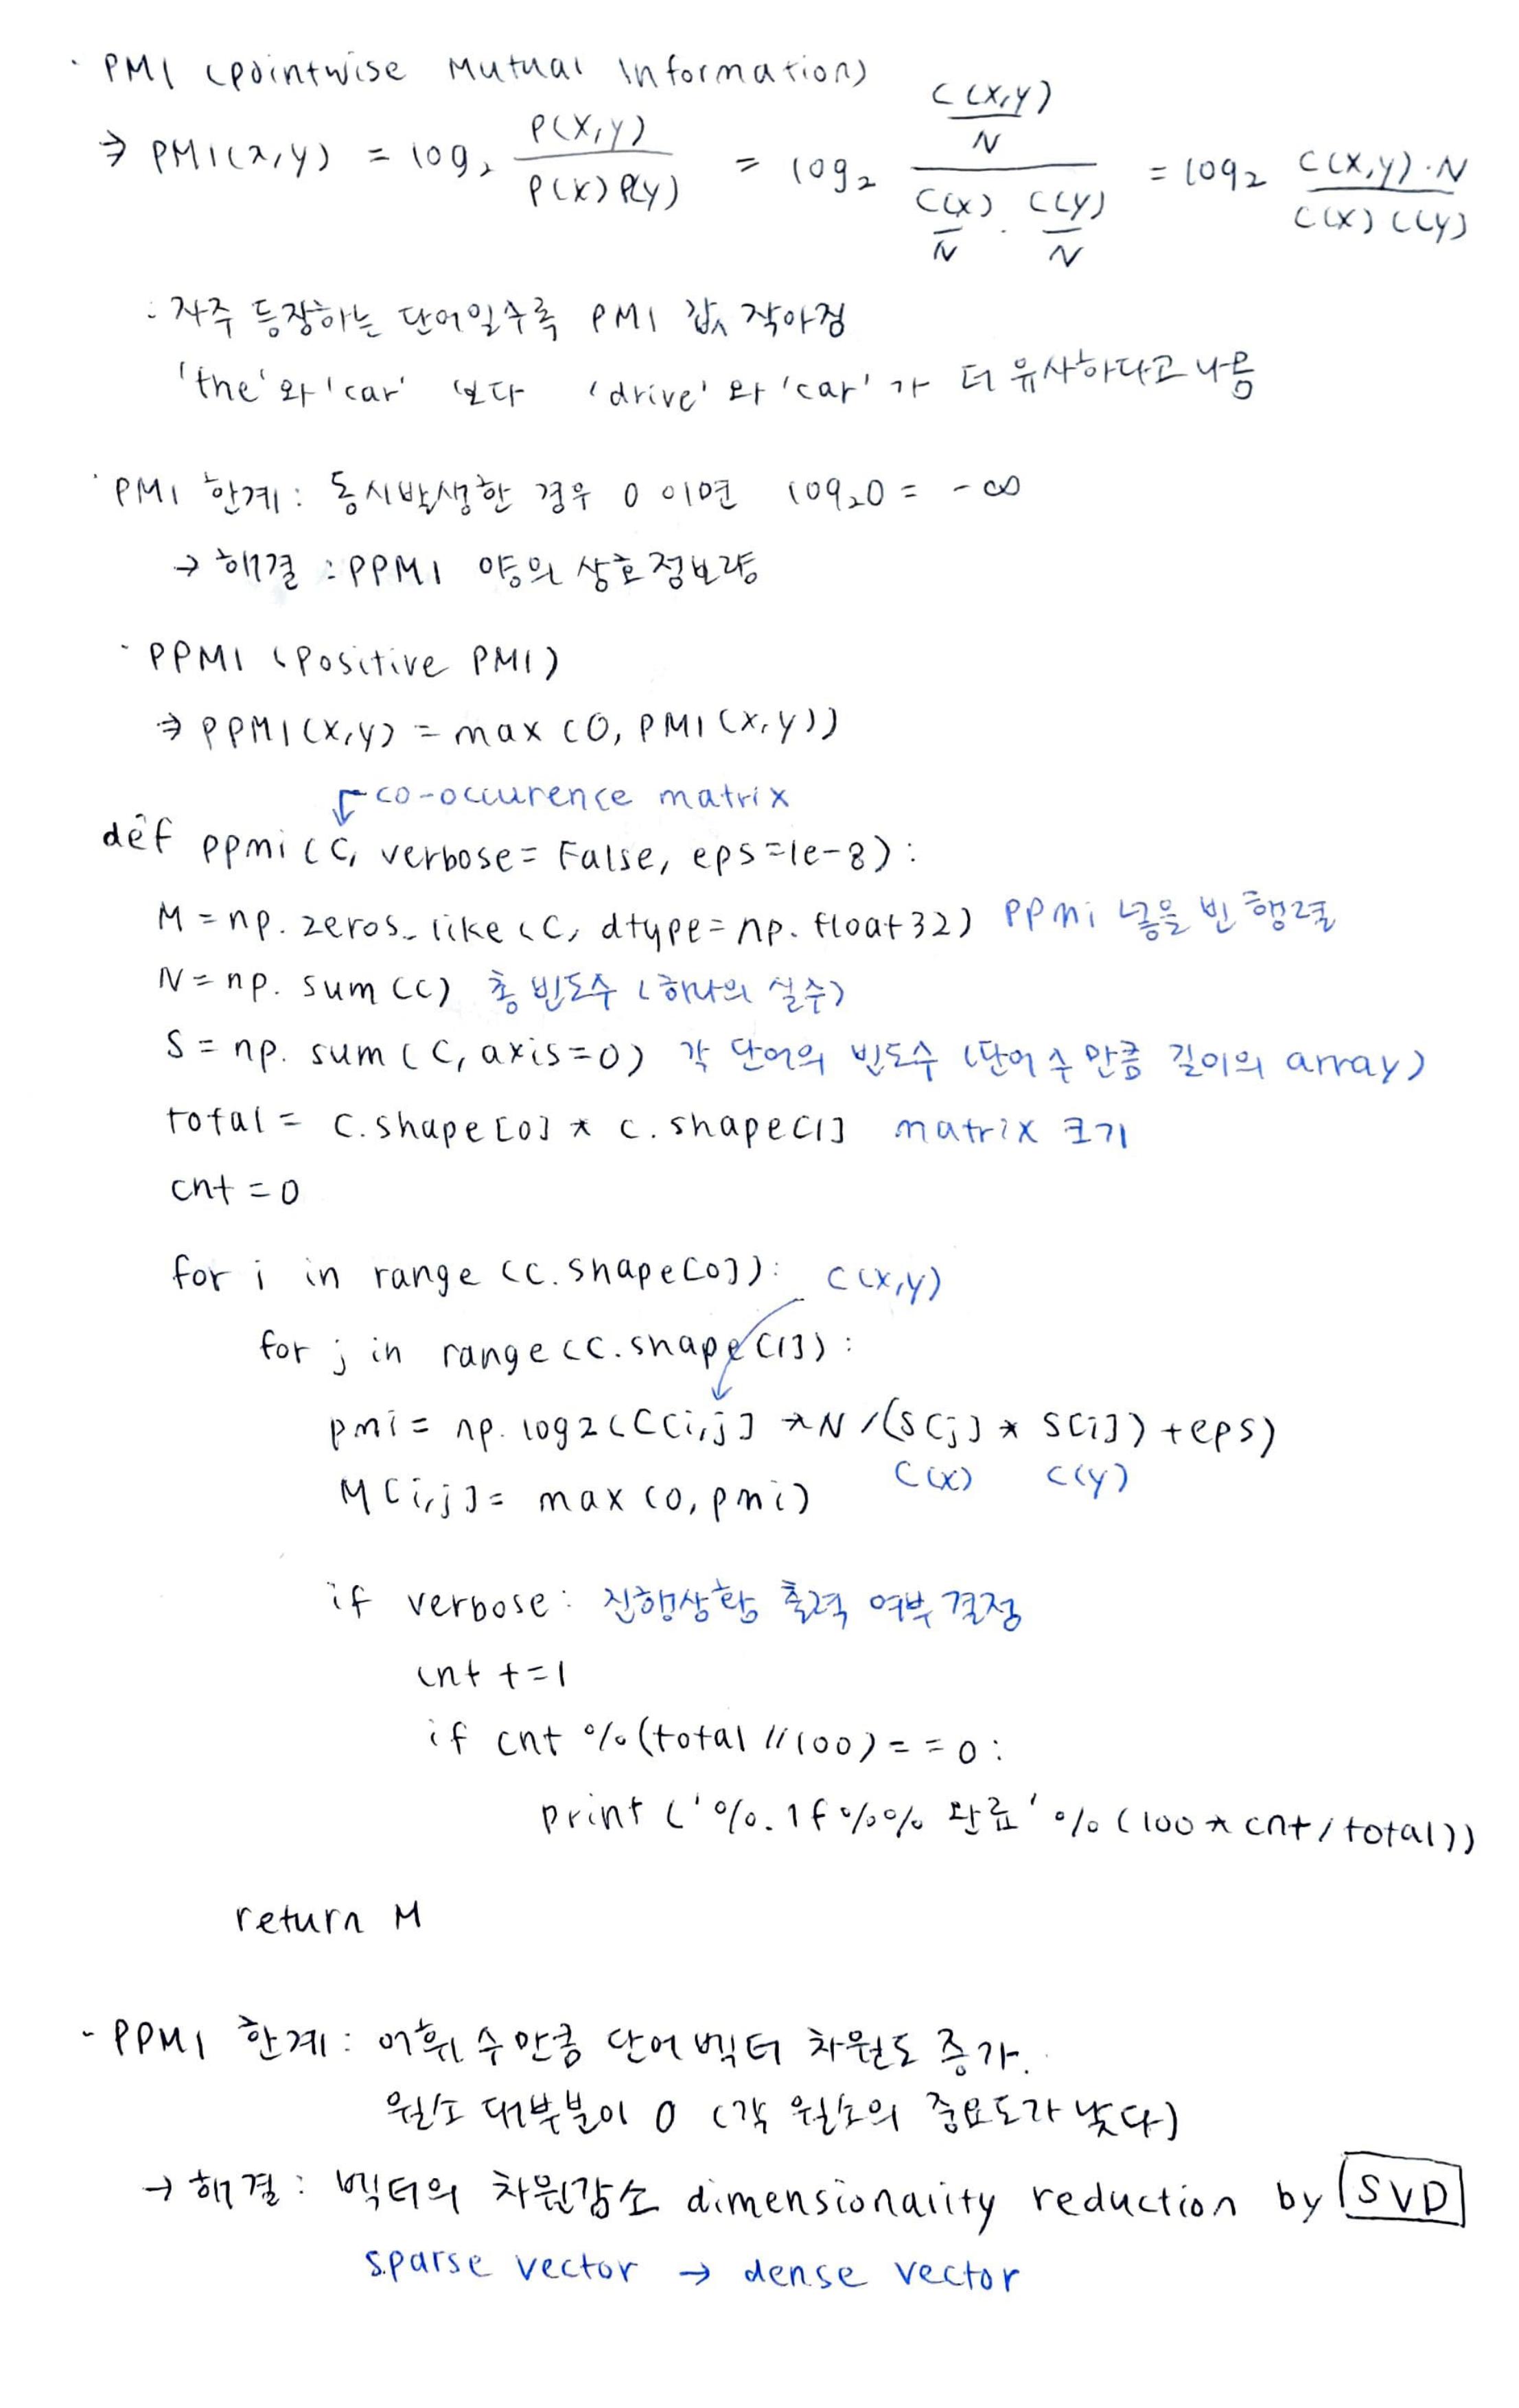 · PMI (pointwise Mutual Information)
⇒ PMI(x,y) = log₂ P(X,Y) / P(X) P(Y) = log₂ (C(X,Y)/N) / (C(X)/N · C(Y)/N) = log₂ C(X,Y)·N / C(X) C(Y)
: 자주 등장하는 단어일수록 PMI 값 작아짐
'the'와 'car' 보다 'drive'와 'car'가 더 유사하다고 나옴
· PMI 한계 : 동시발생한 경우 0 이면 log₂0 = -∞
→ 해결 : PPMI 양의 상호정보량
· PPMI (Positive PMI)
⇒ PPMI(X,Y) = max(0, PMI(X,Y))
co-occurence matrix
def ppmi(C, verbose=False, eps=1e-8):
M = np.zeros_like(C, dtype=np.float32) ppmi 넣을 빈 행렬
N = np.sum(C) 총 빈도수 (하나의 실수)
S = np.sum(C, axis=0) 각 단어의 빈도수 (단어 수 만큼 길이의 array)
total = C.shape[0] * C.shape[1] matrix 크기
cnt = 0
for i in range(C.shape[0]): C(X,Y)
for j in range(C.shape[1]):
pmi = np.log2(C[i,j] *N /(S[j] * S[i]) +eps)
C(X) C(Y)
M[i,j] = max(0, pmi)
if verbose: 진행상황 출력 여부 결정
cnt +=1
if cnt %(total //100) == 0:
print('%.1f%% 완료' %(100*cnt/total))
return M
- PPMI 한계 : 어휘 수 만큼 단어 벡터 차원도 증가.
원소 대부분이 0 (각 원소의 중요도가 낮다)
→ 해결 : 벡터의 차원감소 dimensionality reduction by SVD
sparse vector → dense vector